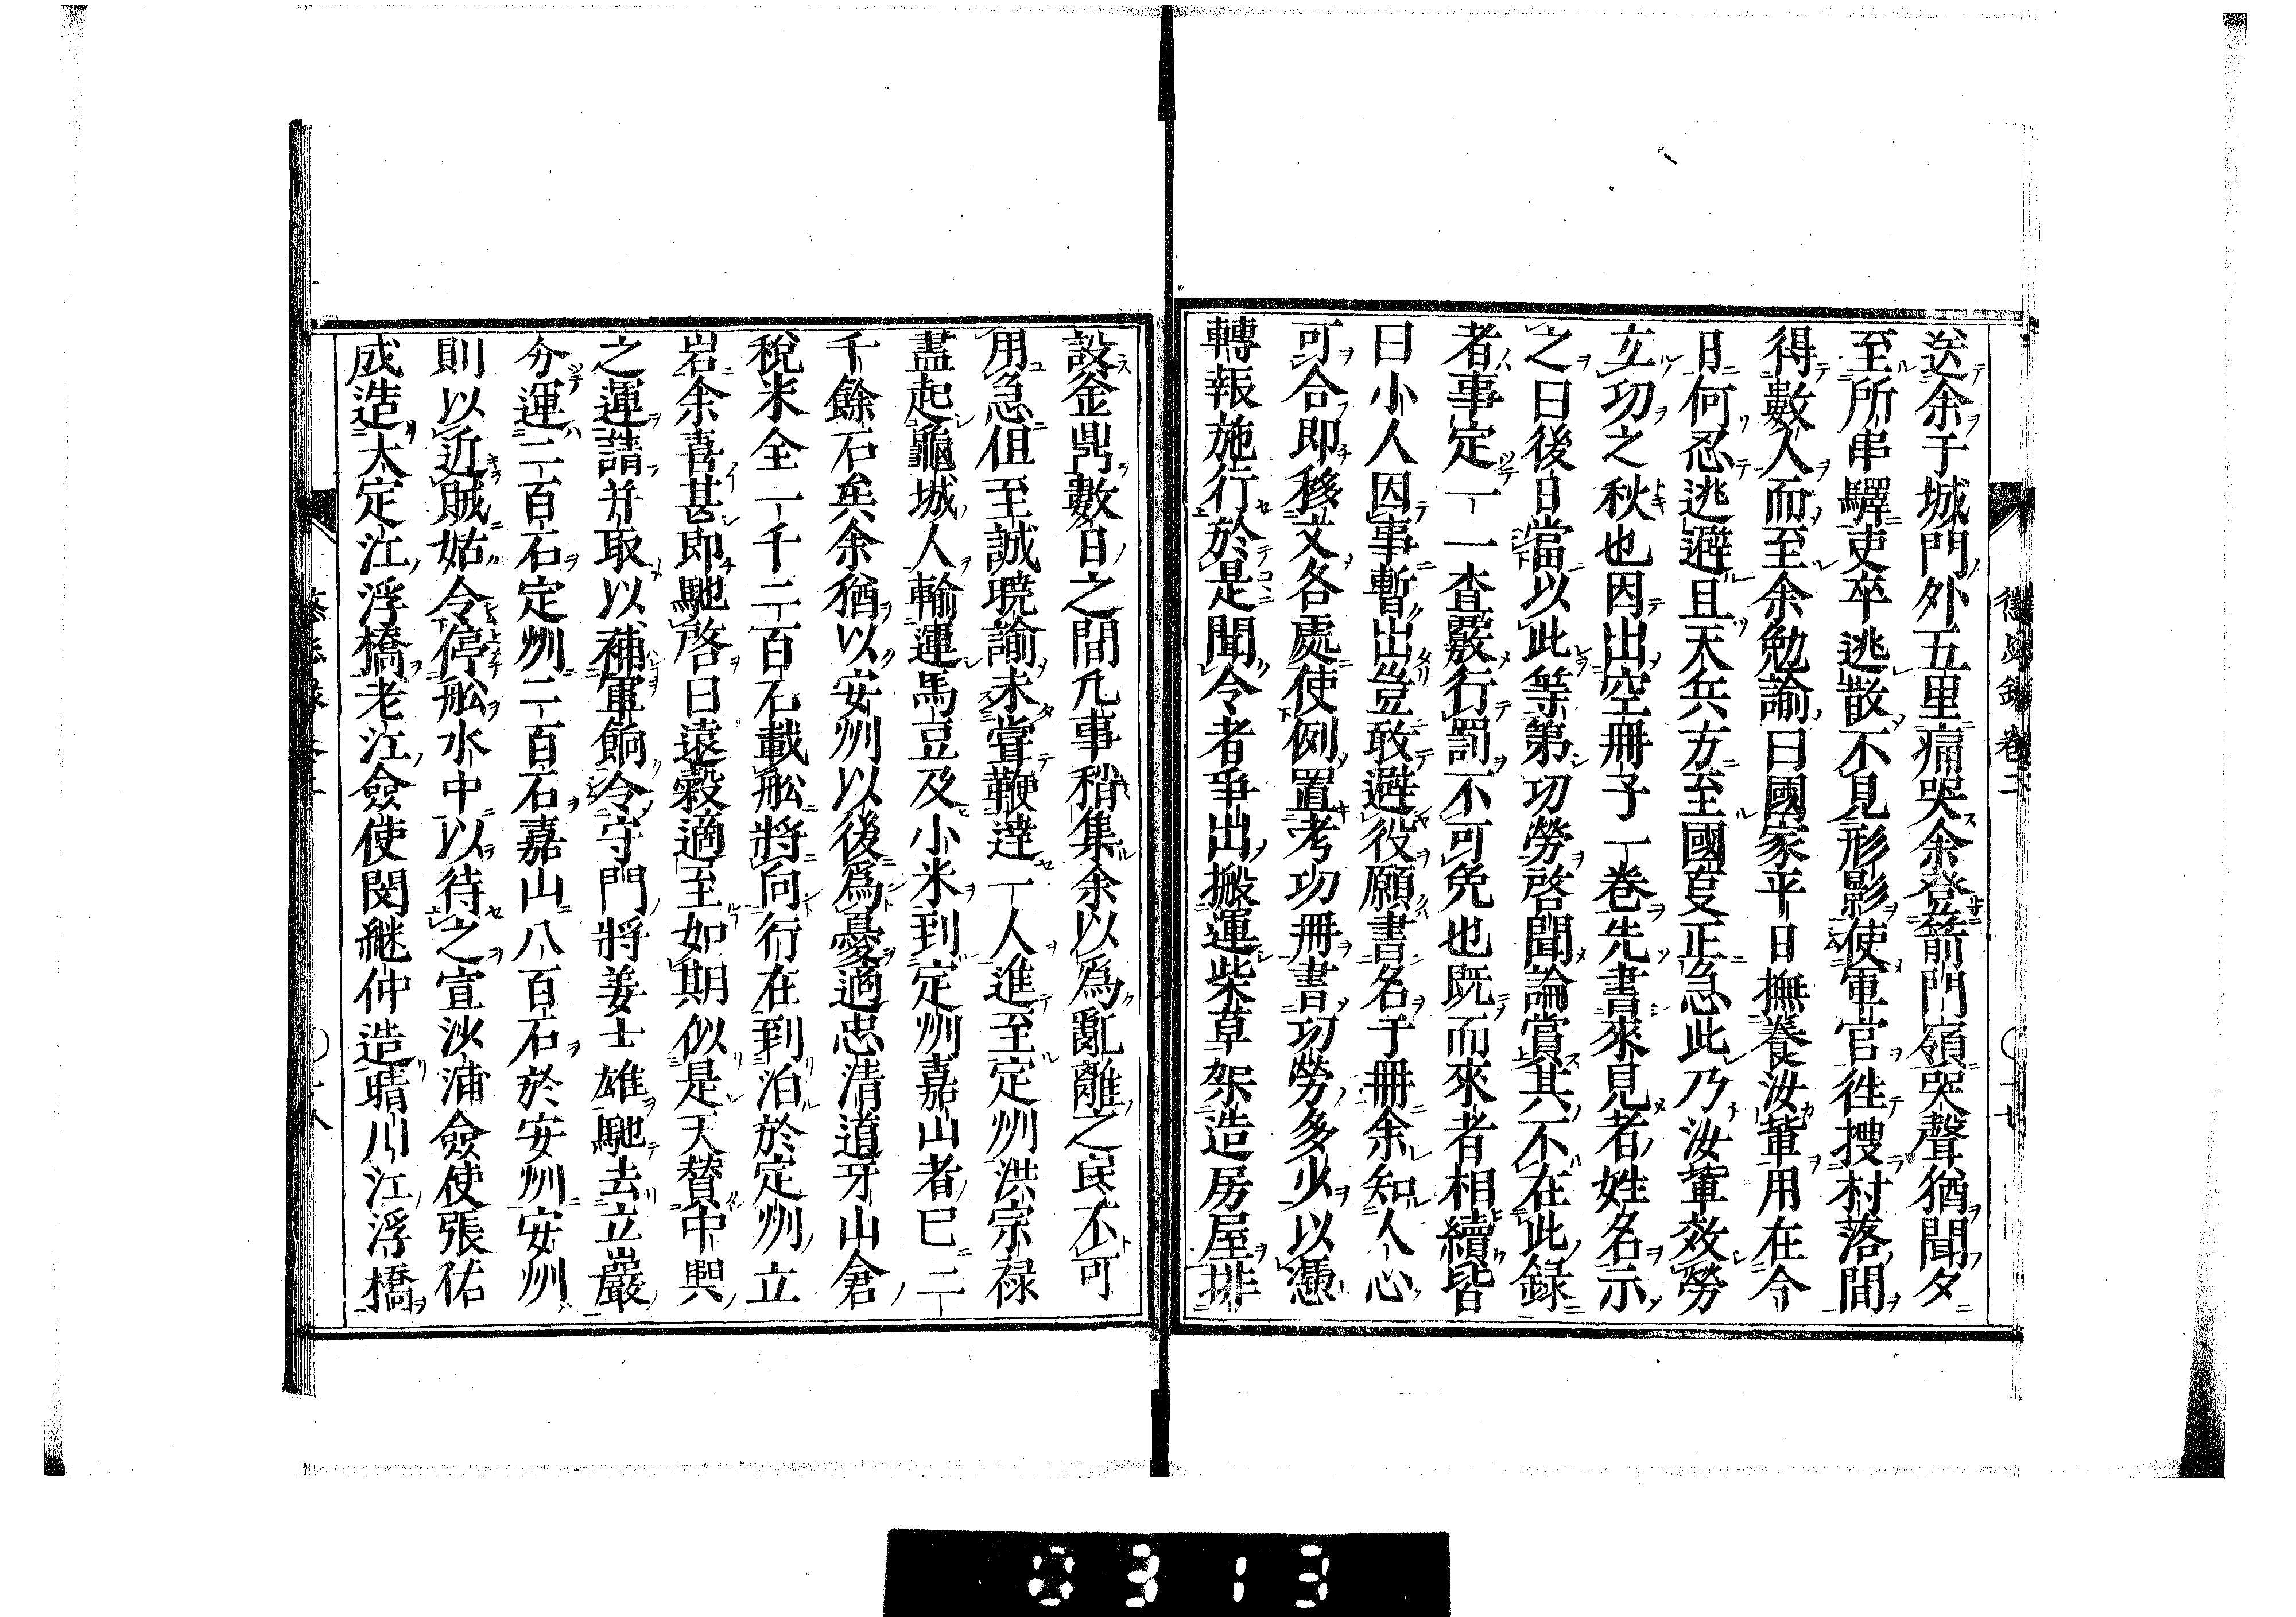 懲毖錄 卷二
送余于城門外五里痛哭余登箭門嶺哭聲猶聞夕
至所串驛吏卒逃散不見形影使軍官徃搜村落間
得數人而至余勉諭曰國家平日撫養汝軰用在今
日何忍逃避且天兵方至國㕝正急此乃汝軰效勞
立功之秋也因出空冊子一卷先書來見者姓名示
之曰後日當以此等第功勞啓聞論賞其不在此錄
者事定一一查覈行罰不可免也既而來者相續皆
曰小人因事暫出豈敢避役願書名于冊余知人心
可合即移文各處使例置考功冊書功勞多少以憑
轉報施行於是聞令者爭出搬運柴草架造房屋排
設釜鼎數日之間凢事稍集余以爲亂離之民不可
用急但至誠曉諭未嘗鞭達一人進至定州洪宗祿
盡起龜城人輸運馬豆及小米到定州嘉山者已二
千餘石矣余猶以安州以後爲憂適忠淸道牙山倉
稅米全一千二百石載舩將向行在到泊於定州立
岩余喜甚即馳啓曰遠糓適至如期似是天贊中興
之運請并取以補軍餉令守門將姜士雄馳去立巖
分運二百石定州二百石嘉山八百石於安州安州
則以近賊姑令停舩水中以待之宣沙浦僉使張佑
成造大定江浮橋老江僉使閔継仲造晴川江浮橋